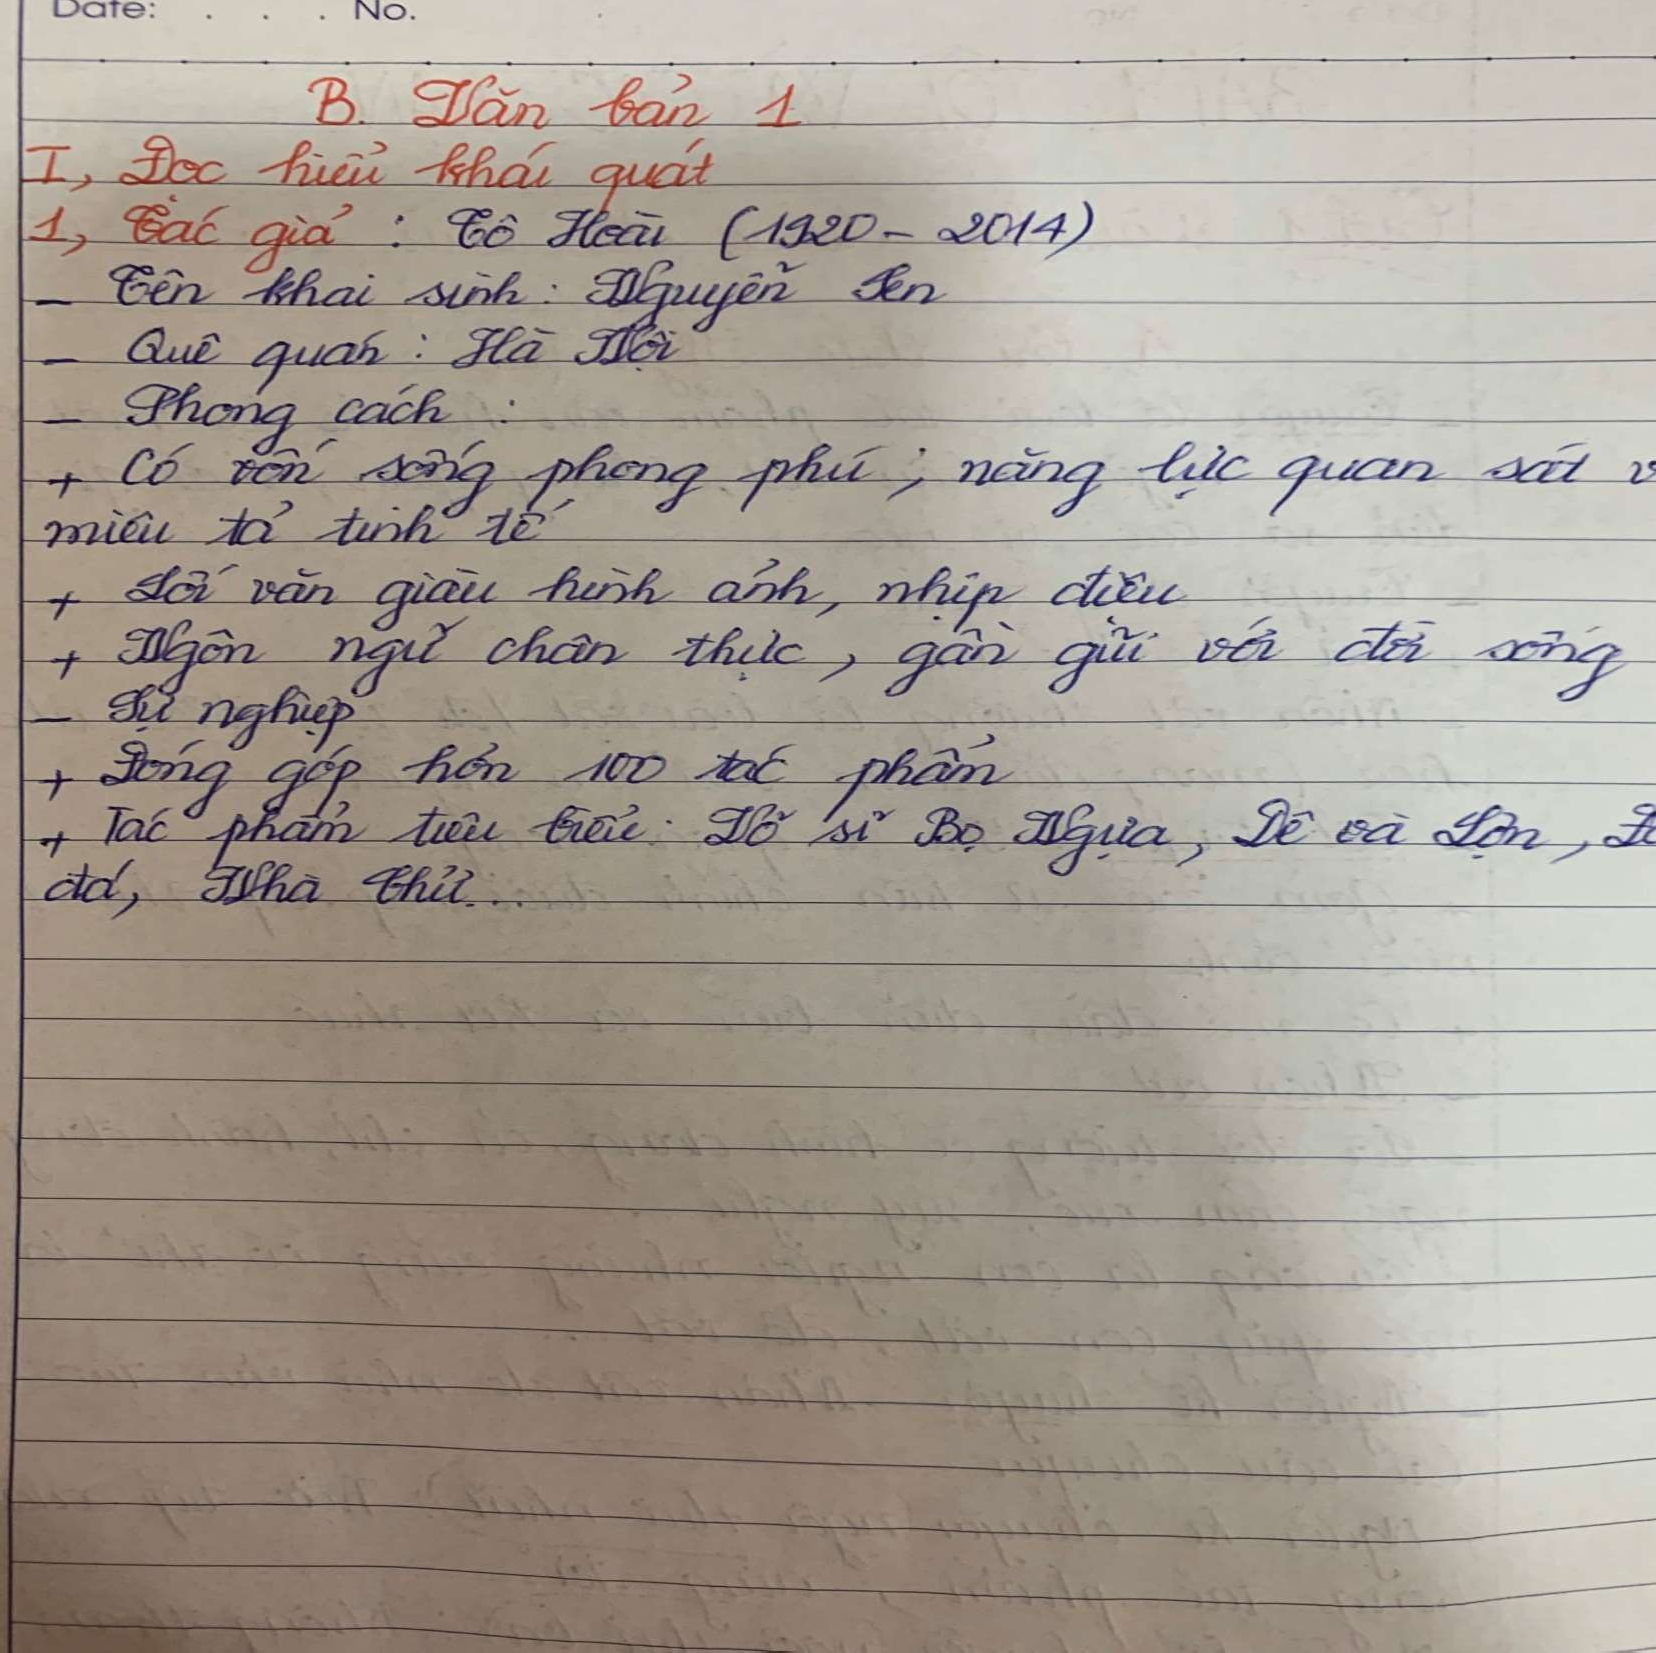 Date: . . . No.
B. Văn bản 1
I, Đọc hiểu khái quát
1, Tác giả : Tô Hoài (1920 - 2014)
- Tên khai sinh : Nguyễn Sen
- Quê quán : Hà Nội
- Phong cách :
+ Có vốn sống phong phú ; năng lực quan sát v
miêu tả tinh tế
+ Lối văn giàu hình ảnh, nhịp điệu
+ Ngôn ngữ chân thực, gần gũi với đời sống
- Sự nghiệp
+ Đóng góp hơn 100 tác phẩm
+ Tác phẩm tiêu biểu : Võ sĩ Bọ Ngựa, Dê và Lợn,
đá, Nhà Chử...